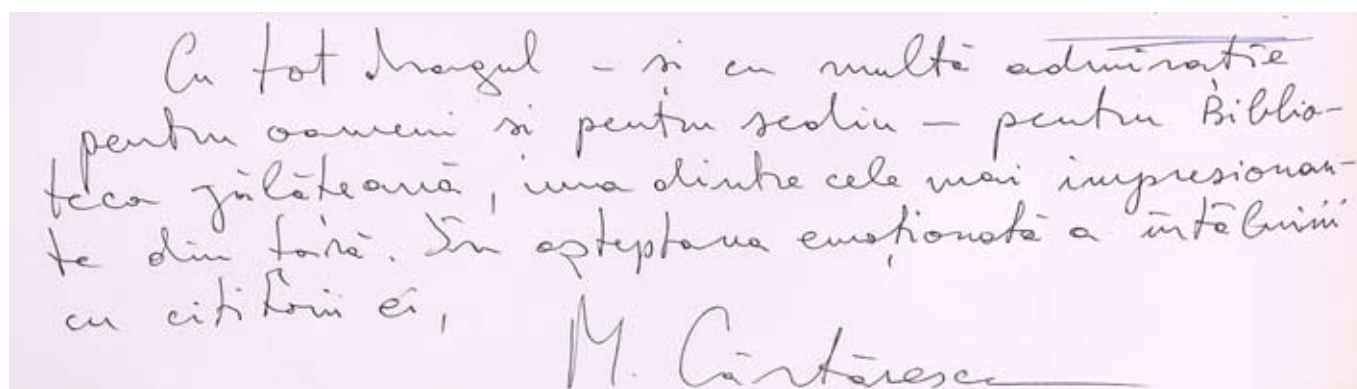 Cu tot dragul – și cu multă admirație
pentru oameni și pentru sediu – pentru Biblio-
teca gălățeană, una dintre cele mai impresionan-
te din țară. În așteptarea emoționată a întâlnirii
cu cititorii ei,
M. Cărtărescu